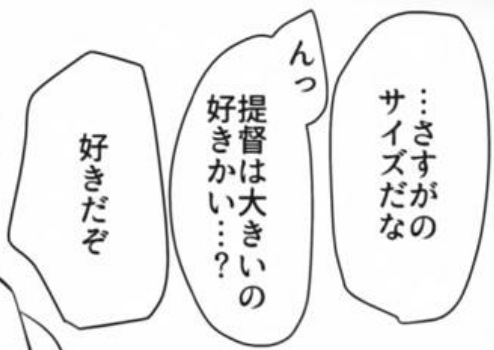 …さすがの
サイズだな
んっ
提督は大きいの
好きかい…？
好きだぞ